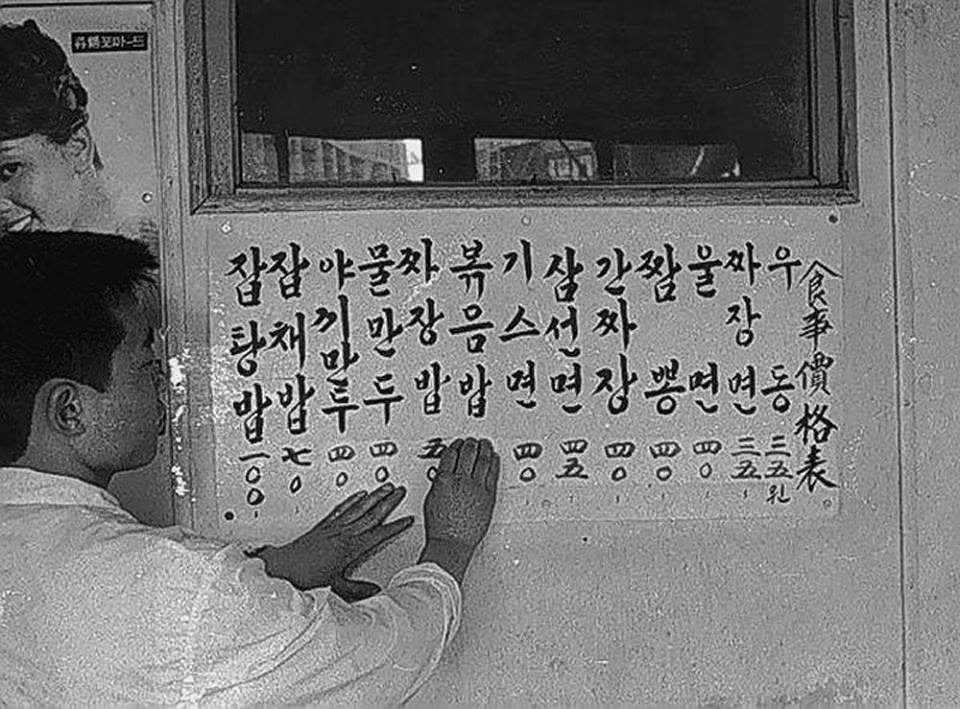 포마-드
食事價格表
우동 三五원
짜장면 三五
울면 四〇
짬뽕 四〇
간짜장 四〇
삼선면 四五
기스면 四〇
볶음밥
짜장밥 五〇
물만두 四〇
야끼만두 四〇
잡채밥 七〇
잡탕밥 一〇〇